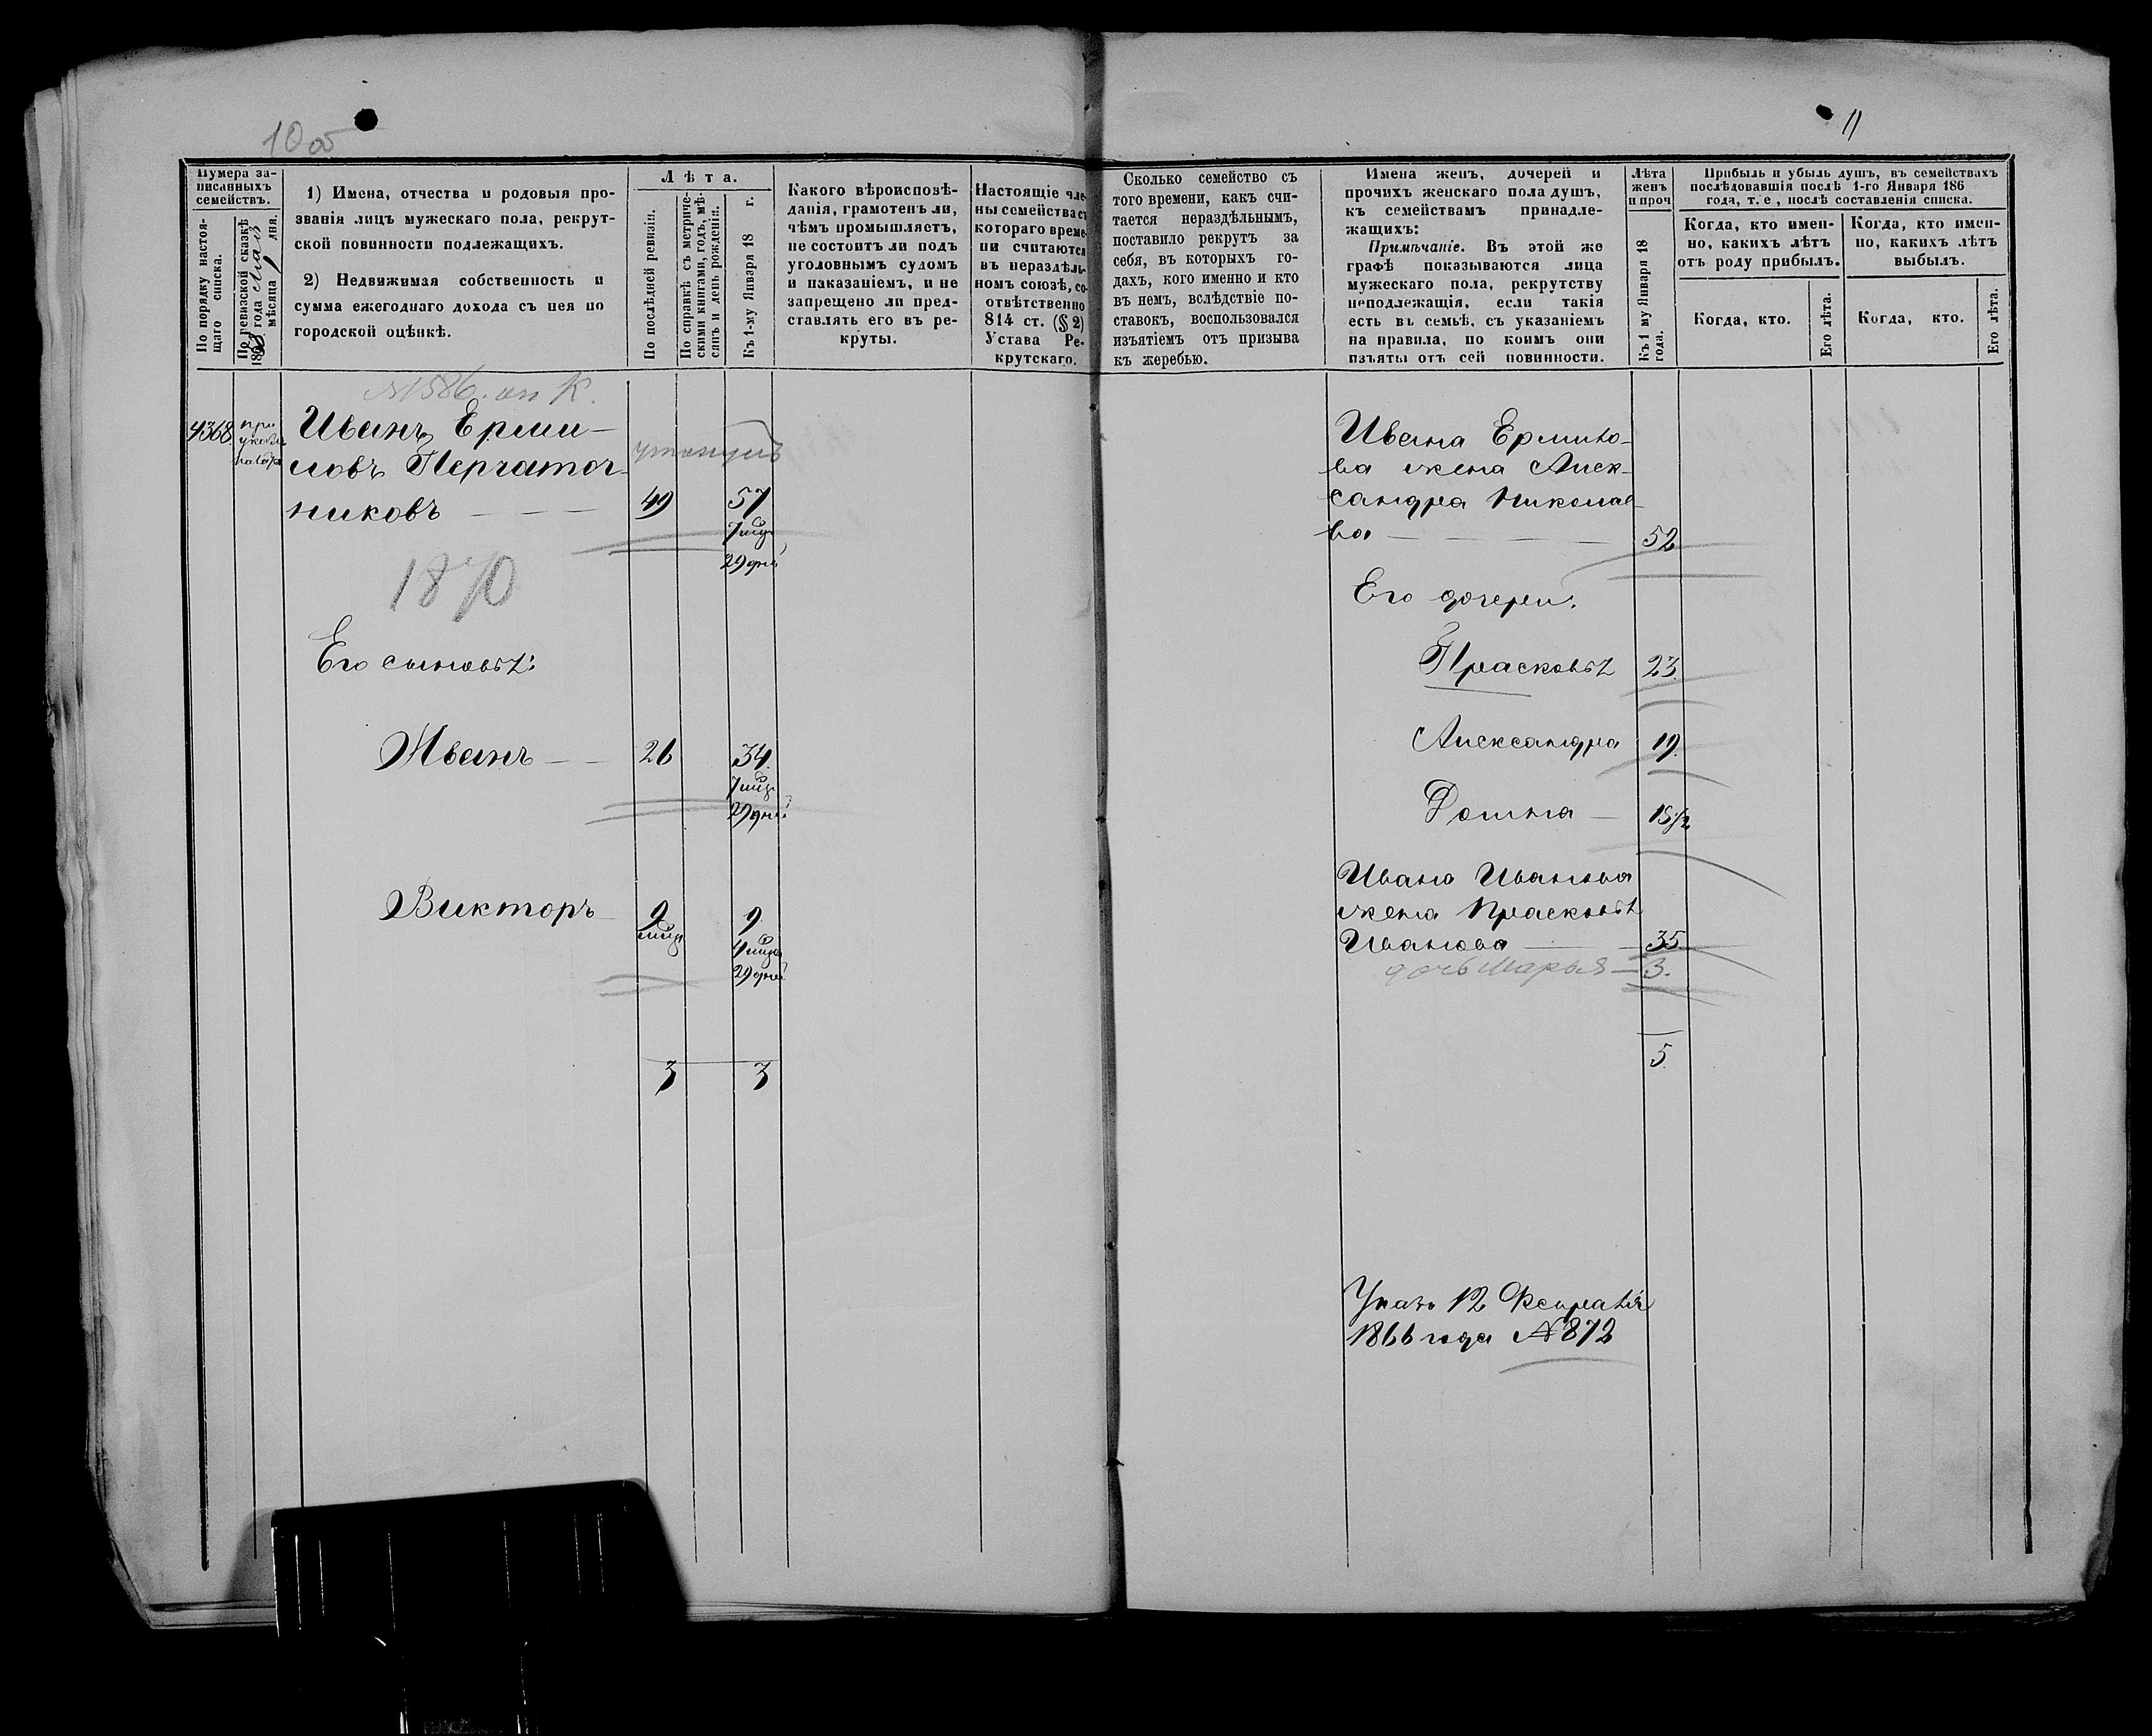 10 об
11
Нумера за-
писанныхъ
семействъ.
По порядку настоя-
щаго списка.
По ревизской сказкѣ
1858 года мая 3
мѣсяца дня.
1) Имена, отчества и родовыя про-
званія лицъ мужескаго пола, рекрут-
ской повинности подлежащихъ.
2) Недвижимая собственность и
сумма ежегоднаго дохода съ нея по
городской оцѣнкѣ.
Лѣта.
По послѣдней ревизіи.
По справкѣ съ метриче-
скими книгами, годъ, мѣ-
сяцъ и день рожденія.
Къ 1-му Января 18 г.
Какого вѣроисповѣ-
данія, грамотенъ ли,
чѣмъ промышляетъ,
не состоитъ ли подъ
уголовнымъ судомъ
и наказаніемъ, и не
запрещено ли пред-
ставлять его въ ре-
круты.
Настоящіе чле-
ны семейства съ
котораго време-
ни считаются
въ нераздѣль-
номъ союзѣ, со-
отвѣтственно
814 ст. (§ 2)
Устава Ре-
крутскаго.
Сколько семейство съ
того времени, какъ счи-
тается нераздѣльнымъ,
поставило рекрутъ за
себя, въ которыхъ го-
дахъ, кого именно и кто
въ немъ, вслѣдствіе по-
ставокъ, воспользовался
изъятіемъ отъ призыва
къ жеребью.
Имена женъ, дочерей и
прочихъ женскаго пола душъ,
къ семействамъ принадле-
жащихъ:
Примѣчаніе. Въ этой же
графѣ показываются лица
мужескаго пола, рекрутству
неподлежащія, если такія
есть въ семьѣ, съ указаніемъ
на правила, по коимъ они
изъяты отъ сей повинности.
Лѣта
женъ
и проч
Къ 1 му Января 18
года.
Прибыль и убыль душъ, въ семействахъ
послѣдовавшія послѣ 1-го Января 186
года, т. е., послѣ составленія списка.
Когда, кто имен-
но, какихъ лѣтъ
отъ роду прибылъ.
Когда, кто имен-
но, какихъ лѣтъ
выбылъ.
Когда, кто.
Его лѣта.
Когда, кто.
Его лѣта.
№ 1586. ал К.
4368
при
указѣ
Иванъ Ерми-
ловъ Перчаточ-
никовъ 49 57
утонулъ
7 мѣц
29 дней
1870
Его сыновья:
Иванъ 26 34.
7 мѣц
29 дней
Викторъ 9 9
мѣц 4 мѣца
29 дней
3 3
Ивана Ермило-
ва жена Алек-
сандра Николае-
ва 52
Его дочери.
Прасковья 23
Александра 19.
Домна 18 1/2
Ивана Иванова
жена Прасковья
Иванова 35
дочь Марья — 3.
5
Указъ 12 Февраля
1866 года № 872